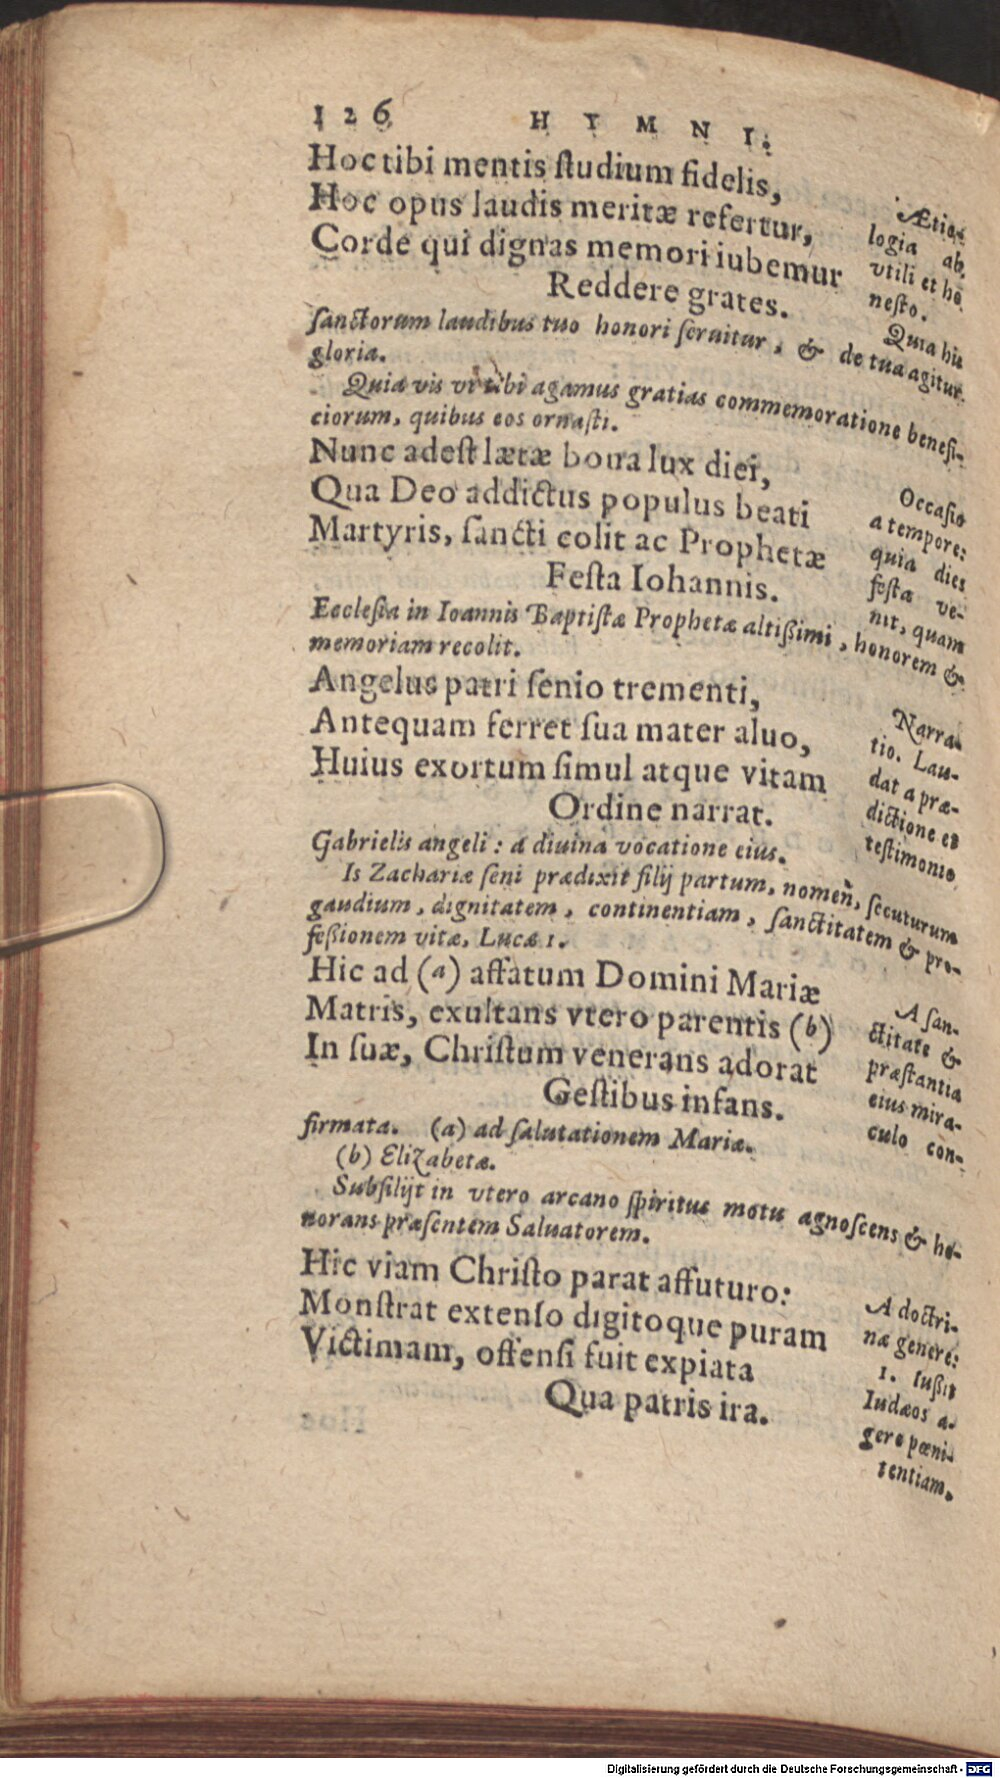 126 HYMNI.
Hoc tibi mentis ſtudium fidelis,
Hoc opus laudis meritæ refertur,
Corde qui dignas memori iubemur
Reddere grates.
Ætio-
logia ab
vtili et ho
neſto.
Quia his
ſanctorum laudibus tuo honori ſeruitur, & de tua agitur
gloria.
Quia vis vt tibi agamus gratias commemoratione benefi-
ciorum, quibus eos ornaſti.
Nunc adeſt lætæ bona lux diei,
Qua Deo addictus populus beati
Martyris, ſancti colit ac Prophetæ
Feſta Iohannis.
Occaſio
a tempore:
quia dies
feſta ve-
nit, quam
Eccleſia in Ioannis Baptiſtæ Prophetæ altißimi, honorem &
memoriam recolit.
Angelus patri ſenio trementi,
Antequam ferret ſua mater aluo,
Huius exortum ſimul atque vitam
Ordine narrat.
Narra-
tio. Lau-
dat a præ-
dictione et
teſtimonio
Gabrielis angeli: a diuina vocatione eius.
Is Zachariæ ſeni prædixit filij partum, nomen, ſecuturum
gaudium, dignitatem, continentiam, ſanctitatem & pro-
feßionem vitæ, Lucæ 1.
Hic ad (a) affatum Domini Mariæ
Matris, exultans vtero parentis (b)
In ſuæ, Chriſtum venerans adorat
Geſtibus infans.
A ſan-
ctitate &
præſtantia
eius mira-
culo con-
firmata. (a) ad ſalutationem Mariæ.
(b) Elizabetæ.
Subſilijt in vtero arcano ſpiritus motu agnoſcens & ho-
norans præſentem Saluatorem.
Hic viam Chriſto parat affuturo:
Monſtrat extenſo digitoque puram
Victimam, offenſi fuit expiata
Qua patris ira.
A doctri-
næ genere:
1. Iußit
Iudæos a-
gere pœni-
tentiam.
Digitalisierung gefördert durch die Deutsche Forschungsgemeinschaft - DFG